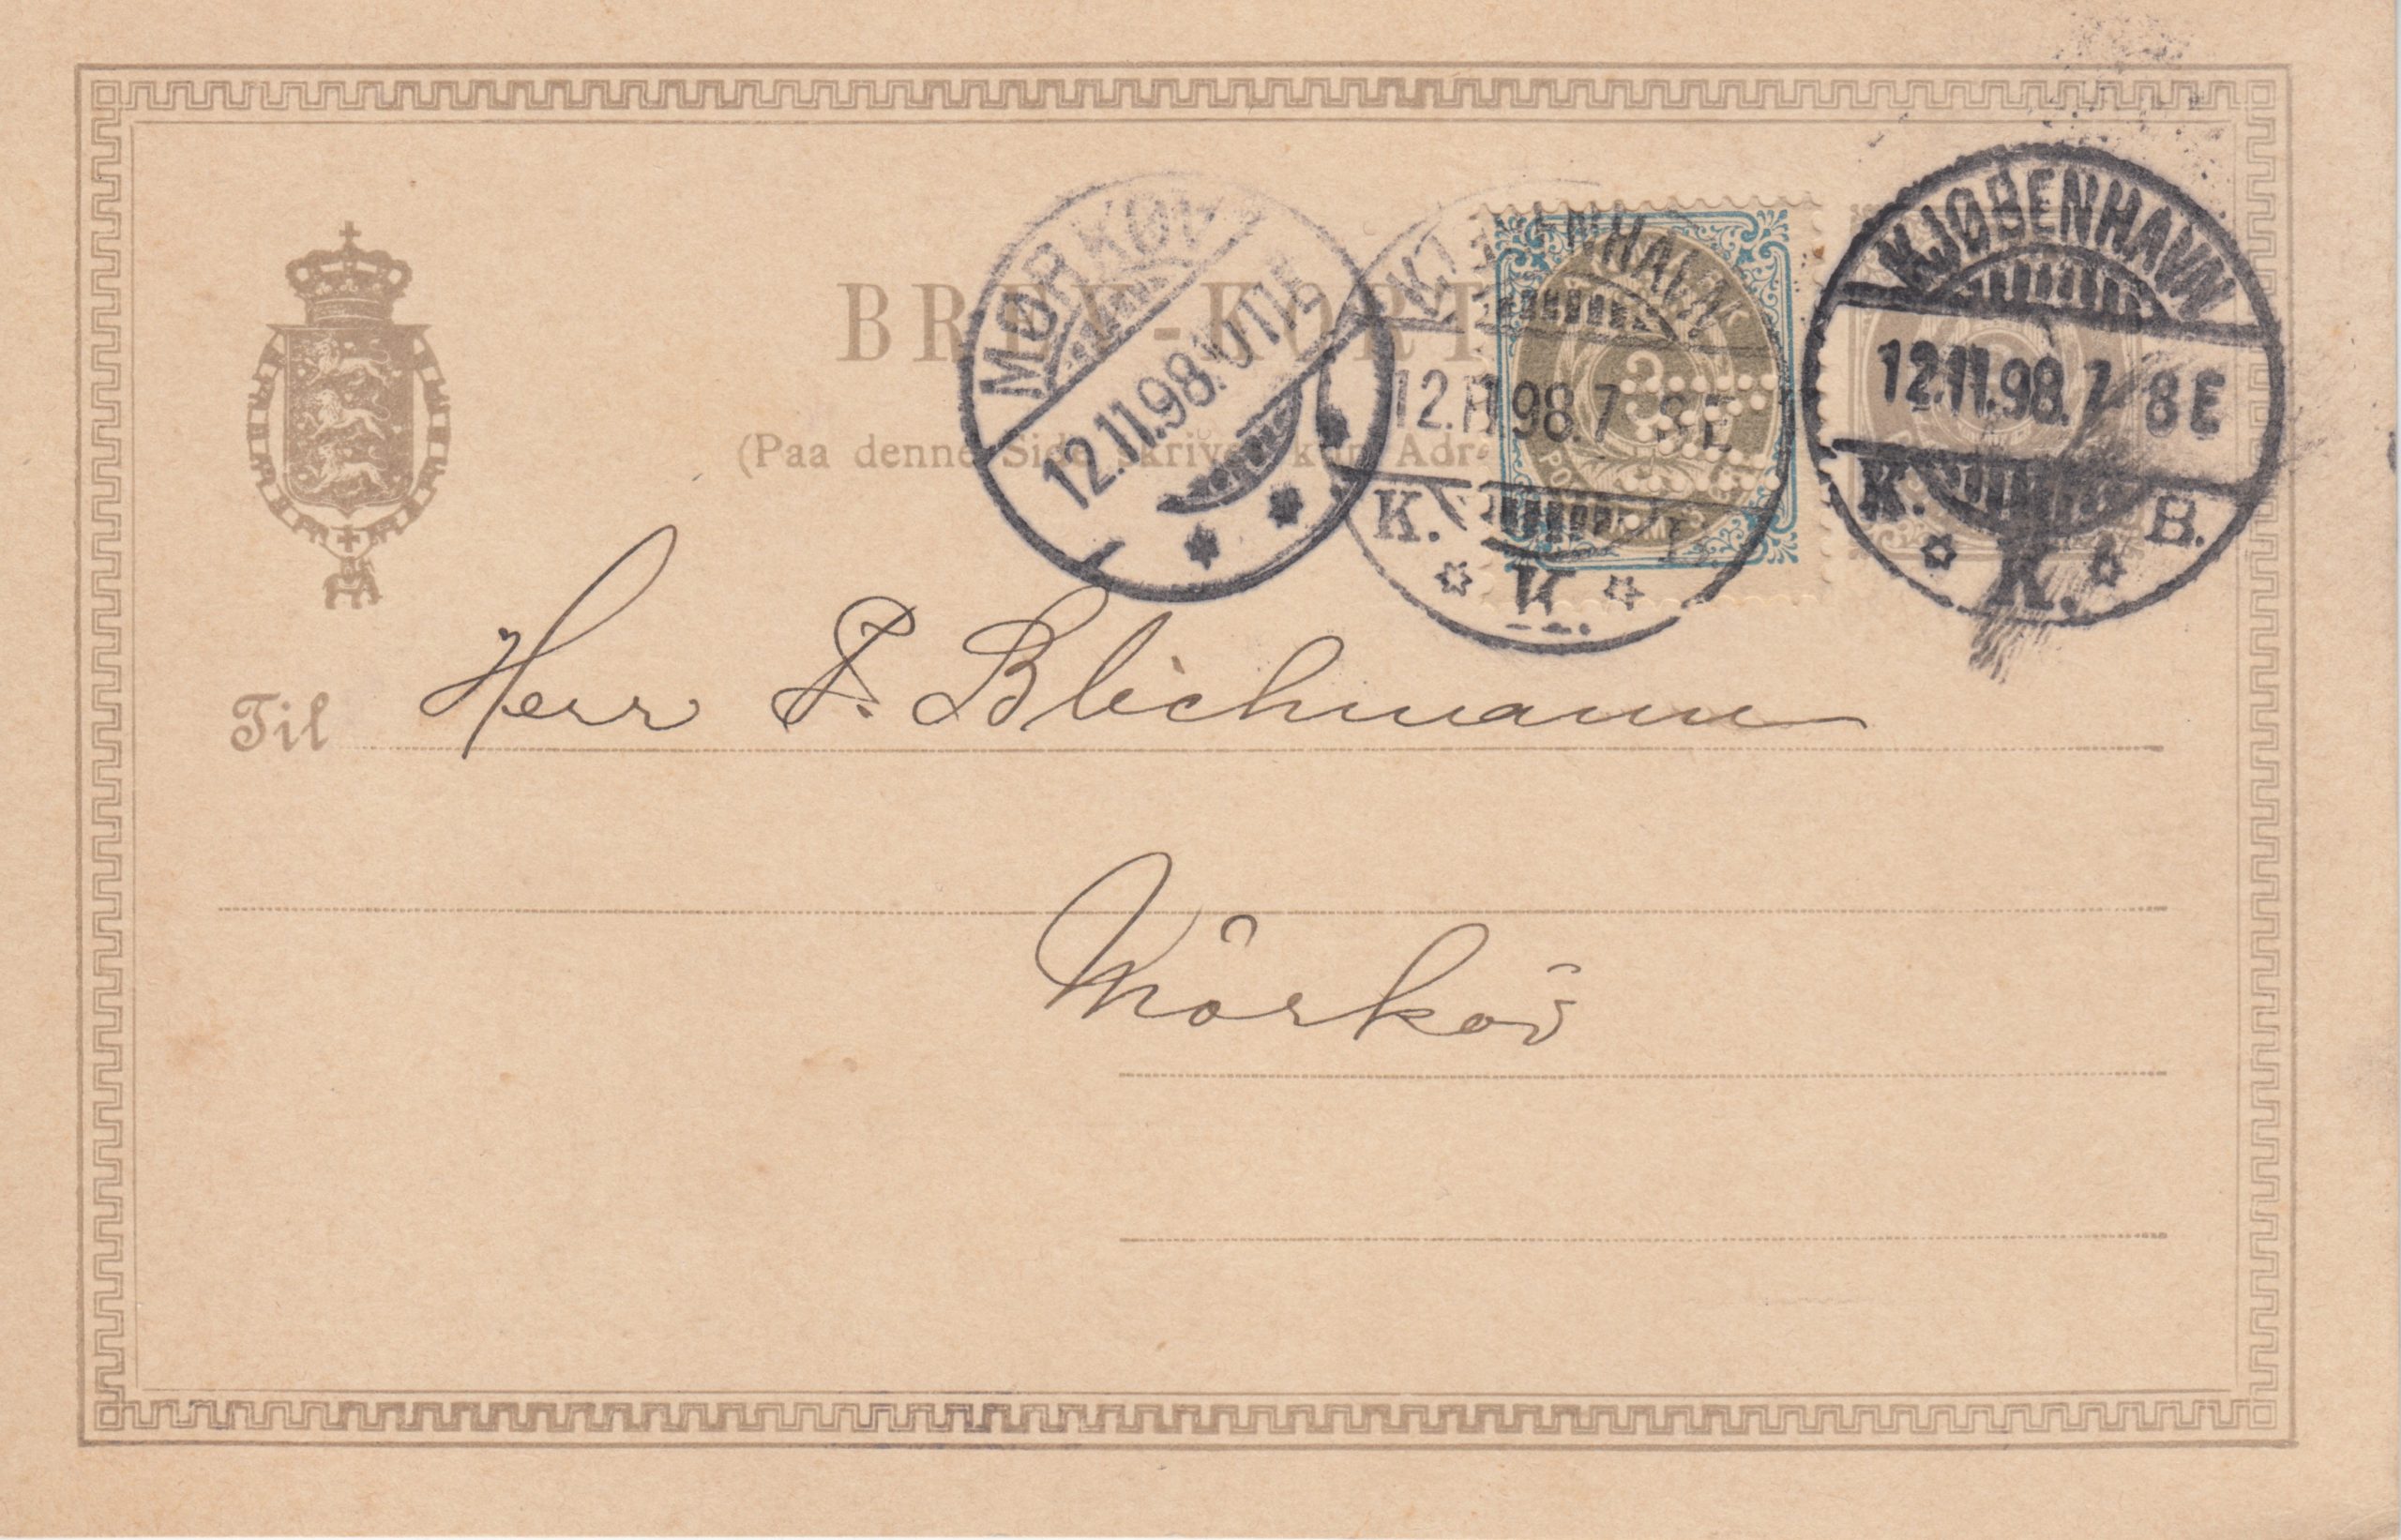 BREV-KORT
(Paa denne Side skrives kun Adr
MØRKØV
12.11.98. 10 11 E
KJØBENHAVN
12.11.98. 7 8 E
K.
K.
KJØBENHAVN
12.11.98. 7 8 E
K. B.
K.
3
Til Herr P. Blichmann
Mörköv